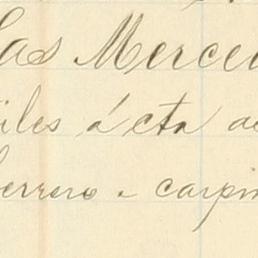 las Merced
tiles á cta de
herrero e carpin